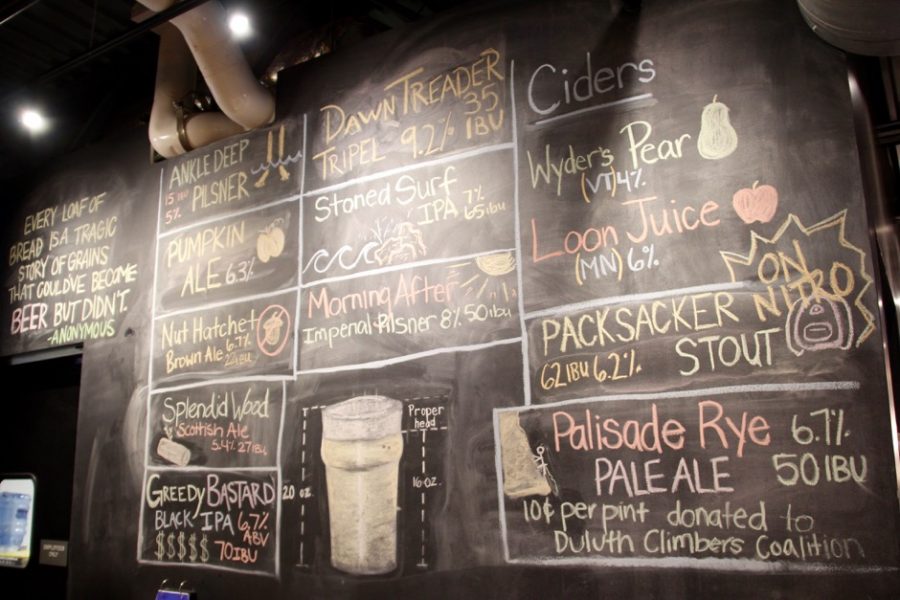 EVERY LOAF OF
BREAD IS A TRAGIC
STORY OF GRAINS
THAT COULD'VE BECOME
BEER BUT DIDN'T.
-ANONYMOUS
ANKLE DEEP
PILSNER
15 IBU
5%
PUMPKIN
ALE 6.3%
Nut Hatchet
Brown Ale 6.7%
Splendid Wood
Scottish Ale
5.4% 27 IBU
GREEDY BASTARD
BLACK IPA 6.7%
ABV
$$$$ 70 IBU
DAWN TREADER
TRIPEL 9.2% 35
IBU
Stoned Surf
IPA 7%
65 ibu
Morning After
Imperial Pilsner 8% 50 ibu
20 oz.
Proper
head
16 oz.
Ciders
Wyder's Pear
(VT) 4%
Loon Juice
(MN) 6%
ON
NITRO
PACKSACKER
STOUT
62 IBU 6.2%
Palisade Rye 6.7%
PALE ALE 50 IBU
10¢ per pint donated to
Duluth Climbers Coalition
EMPLOYEES
ONLY